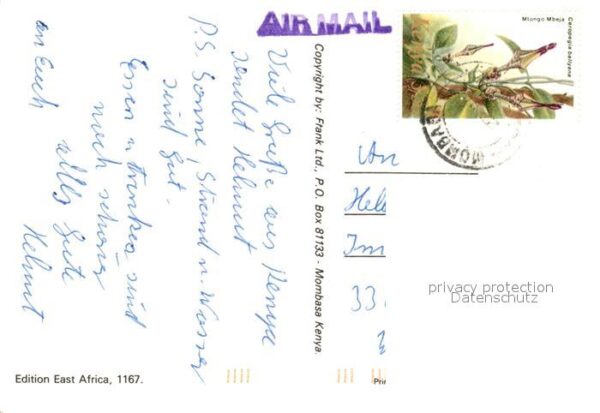 AIR MAIL
Mlongo Mbeja
Ceropegia ballyana
MOMBASA
Viele Grüße aus Kenya
sendet Helmut
P.S. Sonne, Strand u. Wasser
sind gut.
Essen u. Trinken sind
noch schöner
alles Gute
an Euch
Helmut
Copyright by: Frank Ltd., P.O. Box 81133 - Mombasa Kenya.
An
Hel
Im
33
privacy protection
Datenschutz
Edition East Africa, 1167.
Prin